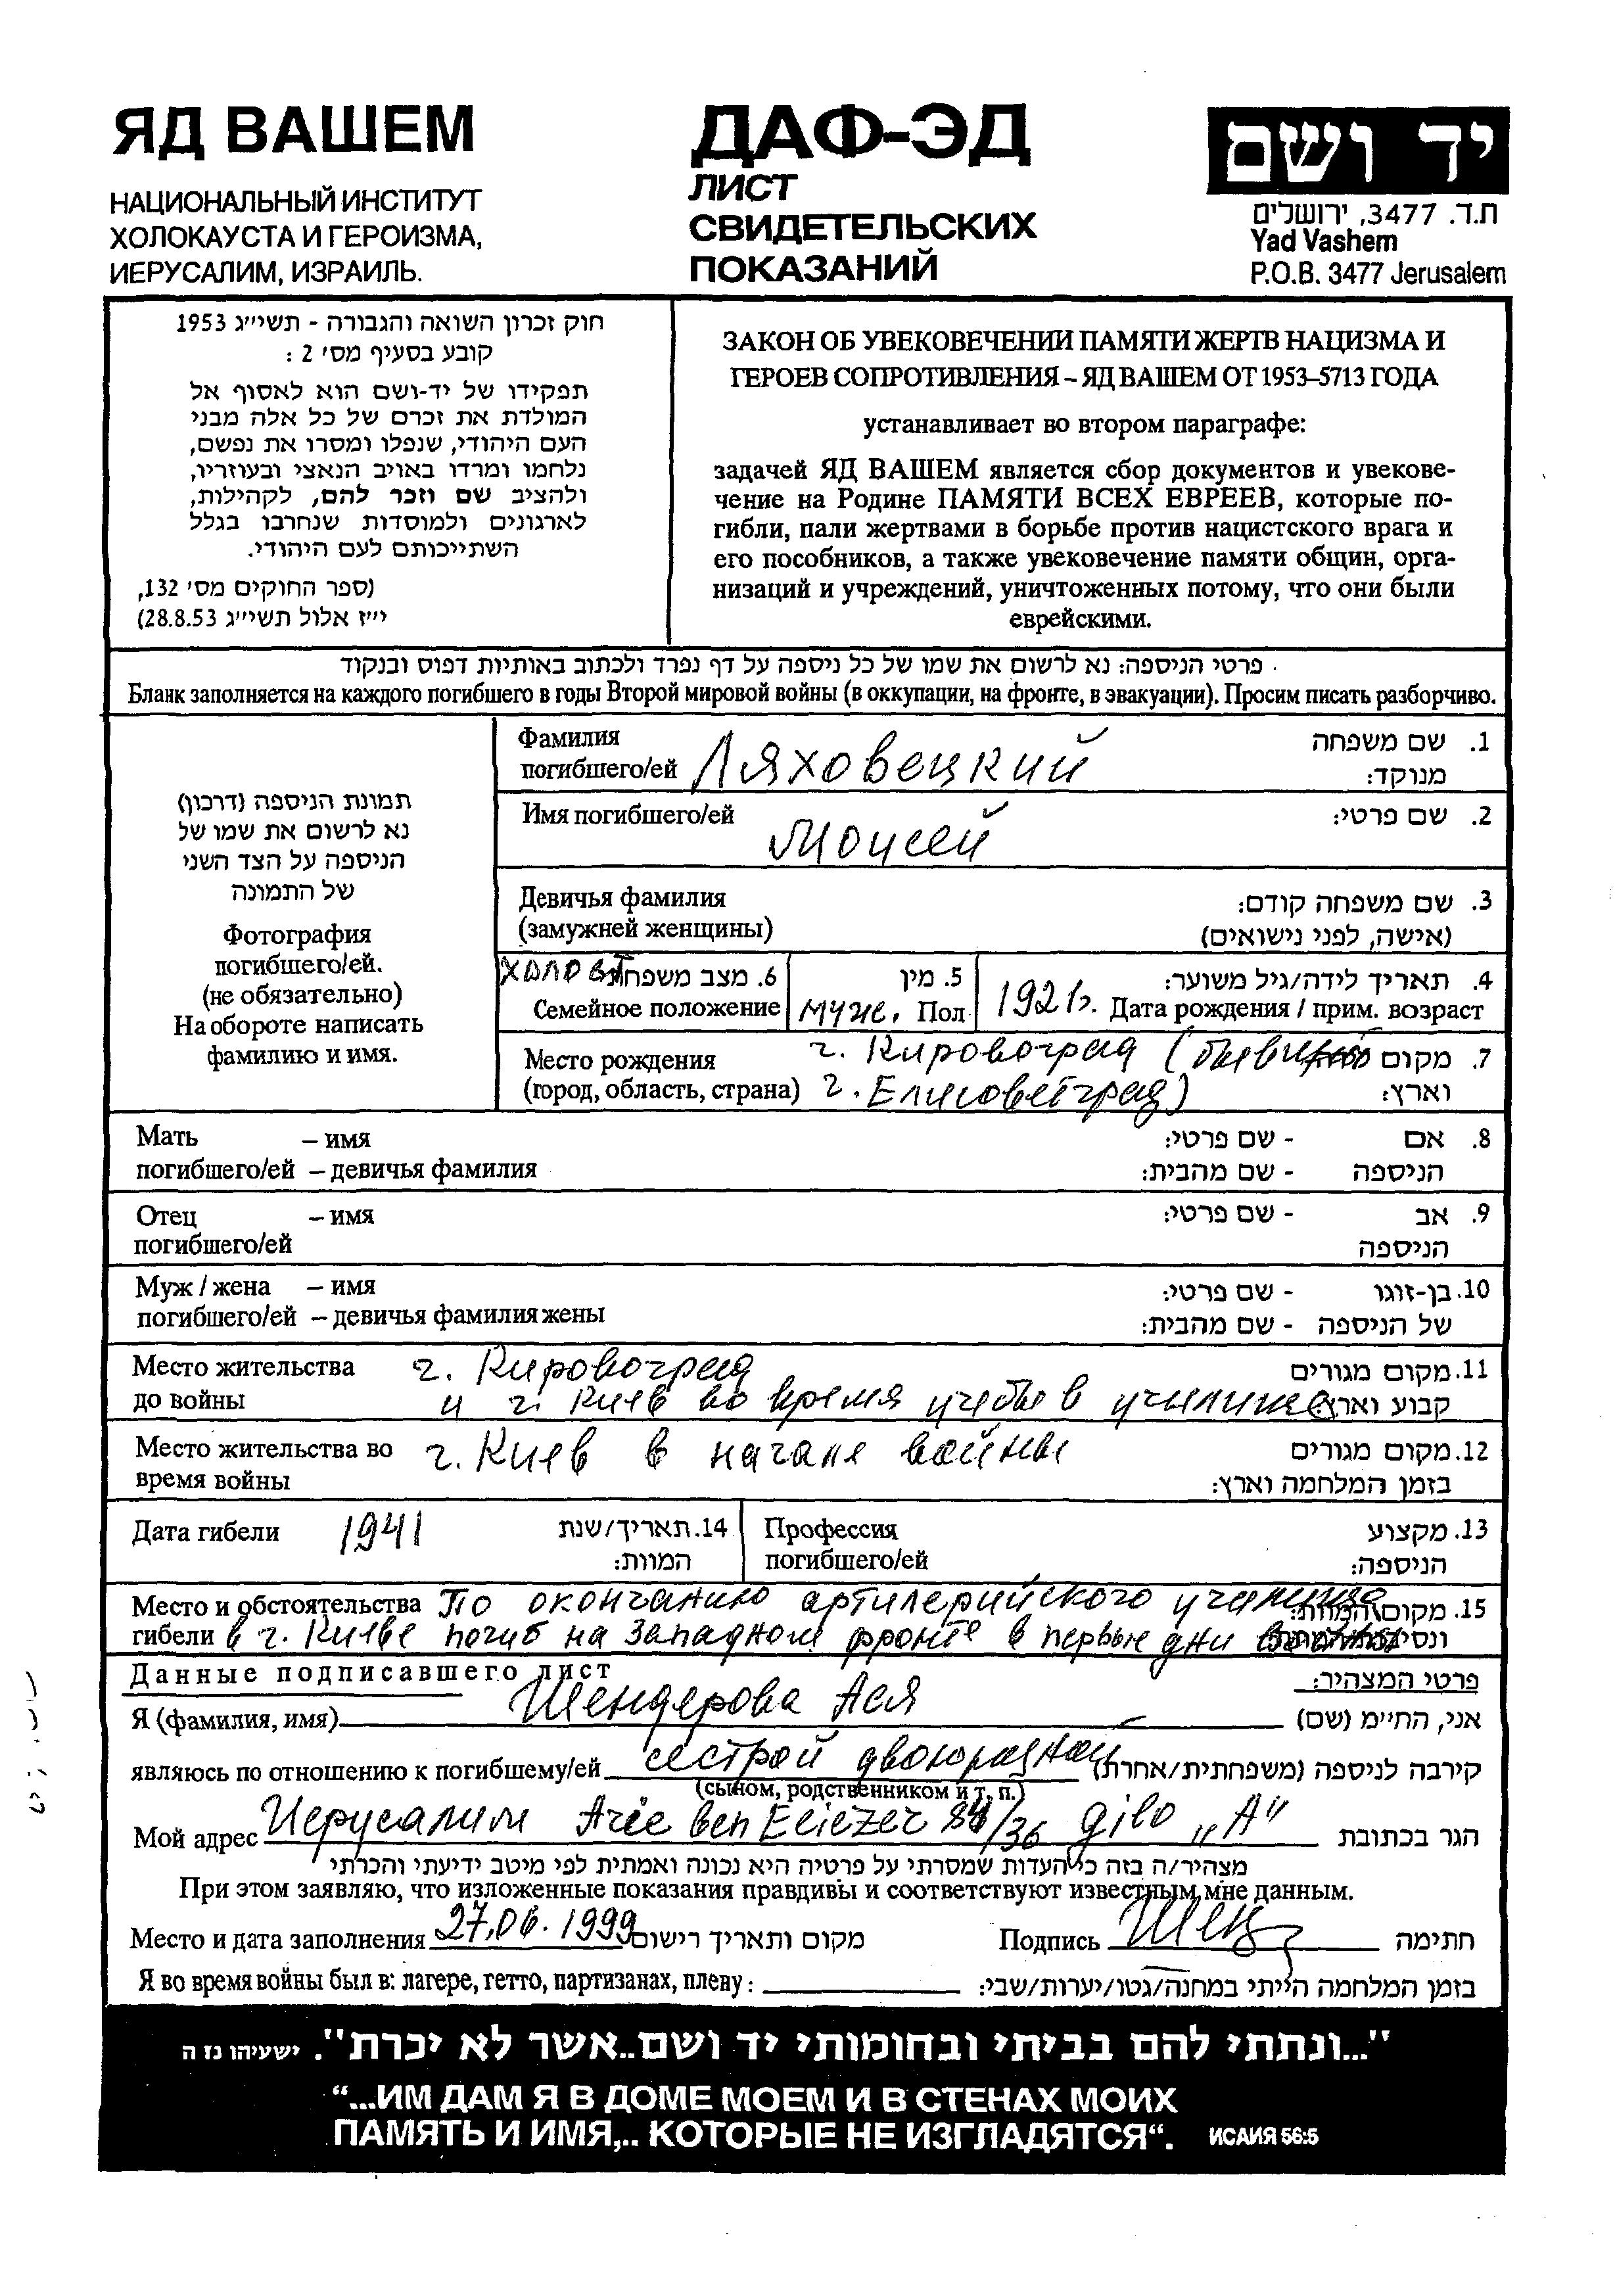 ЯД ВАШЕМ
НАЦИОНАЛЬНЫЙ ИНСТИТУТ
ХОЛОКАУСТА И ГЕРОИЗМА,
ИЕРУСАЛИМ, ИЗРАИЛЬ.
ДАФ-ЭД
ЛИСТ
СВИДЕТЕЛЬСКИХ
ПОКАЗАНИЙ
יד ושם
ת.ד. 3477, ירושלים
Yad Vashem
P.O.B. 3477 Jerusalem
חוק זכרון השואה והגבורה - תשי״ג 1953
קובע בסעיף מס׳ 2 :
תפקידו של יד-ושם הוא לאסוף אל
המולדת את זכרם של כל אלה מבני
העם היהודי, שנפלו ומסרו את נפשם,
נלחמו ומרדו באויב הנאצי ובעוזריו,
ולהציב שם וזכר להם, לקהילות,
לארגונים ולמוסדות שנחרבו בגלל
השתייכותם לעם היהודי.
(ספר החוקים מס׳ 132,
י״ז אלול תשי״ג 28.8.53)
ЗАКОН ОБ УВЕКОВЕЧЕНИИ ПАМЯТИ ЖЕРТВ НАЦИЗМА И
ГЕРОЕВ СОПРОТИВЛЕНИЯ – ЯД ВАШЕМ ОТ 1953–5713 ГОДА
устанавливает во втором параграфе:
задачей ЯД ВАШЕМ является сбор документов и увекове-
чение на Родине ПАМЯТИ ВСЕХ ЕВРЕЕВ, которые по-
гибли, пали жертвами в борьбе против нацистского врага и
его пособников, а также увековечение памяти общин, орга-
низаций и учреждений, уничтоженных потому, что они были
еврейскими.
פרטי הניספה: נא לרשום את שמו של כל ניספה על דף נפרד ולכתוב באותיות דפוס ובנקוד
Бланк заполняется на каждого погибшего в годы Второй мировой войны (в оккупации, на фронте, в эвакуации). Просим писать разборчиво.
תמונת הניספה (דרכון)
נא לרשום את שמו של
הניספה על הצד השני
של התמונה
Фотография
погибшего/ей.
(не обязательно)
На обороте написать
фамилию и имя.
Фамилия 1. שם משפחה
погибшего/ей Ляховецкий מנוקד:
Имя погибшего/ей 2. שם פרטי:
Моисей
Девичья фамилия 3. שם משפחה קודם:
(замужней женщины) (אישה, לפני נישואים)
холост 6. מצב משפחתי
Семейное положение
5. מין
муж. Пол
4. תאריך לידה/גיל משוער:
1921г. Дата рождения / прим. возраст
Место рождения г. Кировоград (бывший 7. מקום
(город, область, страна) г. Елисоветград) וארץ:
Мать – имя 8. אם - שם פרטי:
погибшего/ей – девичья фамилия הניספה - שם מהבית:
Отец – имя 9. אב - שם פרטי:
погибшего/ей הניספה
Муж / жена – имя 10. בן-זוגו - שם פרטי:
погибшего/ей – девичья фамилия жены של הניספה - שם מהבית:
Место жительства г. Кировоград 11. מקום מגורים
до войны и г. Киев во время учебы в училище קבוע וארץ
Место жительства во г. Киев в начале войны 12. מקום מגורים
время войны בזמן המלחמה וארץ:
Дата гибели 1941 14. תאריך/שנת
המוות:
Профессия 13. מקצוע
погибшего/ей הניספה:
Место и обстоятельства По окончанию артилерийского училища 15. מקום המוות:
гибели в г. Киеве погиб на Западном фронте в первые дни войны
Данные подписавшего лист פרטי המצהיר:
Я (фамилия, имя) Шендерова Ася אני, החיימ (שם)
являюсь по отношению к погибшему/ей сестрой двоюродной קירבה לניספה (משפחתית/אחרת)
(сыном, родственником и т. п.)
Мой адрес Иерусалим Arie ben Eliezer 84/36 gilo „A" הגר בכתובת
מצהיר/ה בזה כי העדות שמסרתי על פרטיה היא נכונה ואמתית לפי מיטב ידיעתי והכרתי
При этом заявляю, что изложенные показания правдивы и соответствуют известным мне данным.
Место и дата заполнения 27.06.1999 מקום ותאריך רישום Подпись חתימה
Я во время войны был в: лагере, гетто, партизанах, плену: בזמן המלחמה הייתי במחנה/גטו/יערות/שבי:
"...ונתתי להם בביתי ובחומותי יד ושם..אשר לא יכרת". ישעיהו נז ה
“...ИМ ДАМ Я В ДОМЕ МОЕМ И В СТЕНАХ МОИХ
ПАМЯТЬ И ИМЯ,.. КОТОРЫЕ НЕ ИЗГЛАДЯТСЯ“. ИСАИЯ 56:5